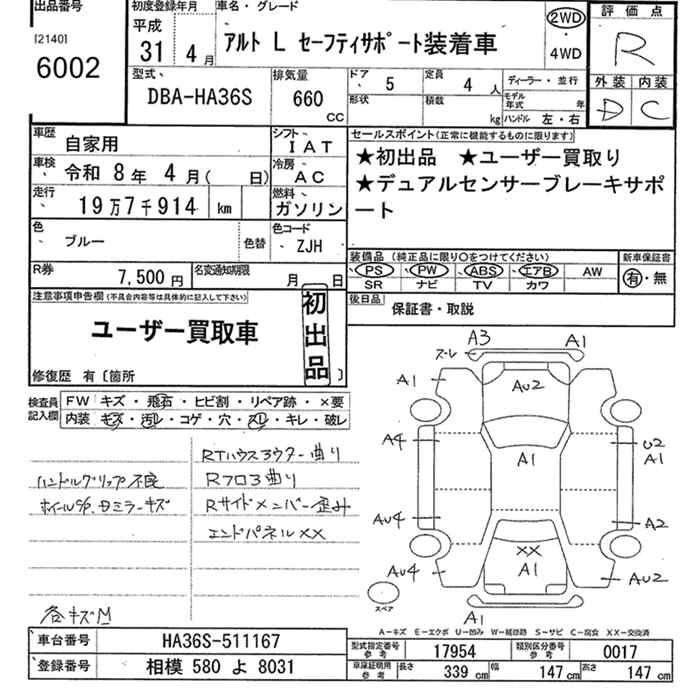 出品番号
[2140]
6002
初度登録年月
平成
31年 4月
車名・グレード
アルト L セーフティサポート装着車
2WD
・
4WD
評価点
R
外装 内装
D C
型式
DBA-HA36S
排気量
660
CC
ドア 5
形状
定員 4 人
積数 kg
ディーラー・並行
モデル年式 年
ハンドル 左・右
車歴 自家用
シフト IAT
車検 令和 8年 4月( 日)
冷房 AC
走行 19万7千914 km
燃料 ガソリン
色 ブルー
色替
色コード ZJH
R券 7,500円
名変通知期限 月 日
セールスポイント(正常に機能するものに限ります)
★初出品 ★ユーザー買取り
★デュアルセンサーブレーキサポート
装備品(純正品に限り〇をつけてください)
PS PW ABS エアB AW
SR ナビ TV カワ
新車保証書
有・無
後日品
保証書・取説
注意事項申告欄(不具合内容等は具体的に記入して下さい)
ユーザー買取車
初出品
修復歴 有〔箇所 〕
検査員記入欄
FW キズ・飛石・ヒビ割・リペア跡・×要
内装 キズ・汚レ・コゲ・穴・スレ・キレ・破レ
ハンドルグリップ不良
ホイールCP.Dミラーキズ
各キズM
RTハウスアウター曲り
Rフロア曲り
Rサイドメンバー歪み
エンドパネルXX
A3
ズレ
A1
A1
AU2
A4
A1
U2
A1
AU4
A2
XX
A1
AU4
AU2
A1
スペア
A－キズ E－エクボ U－凹み W－補修跡 S－サビ C－腐食 XX－交換済
車台番号 HA36S-511167
登録番号 相模 580 よ 8031
型式指定番号 参考 17954
類別区分番号 参考 0017
車庫証明用参考 長さ 339 cm 幅 147 cm 高さ 147 cm